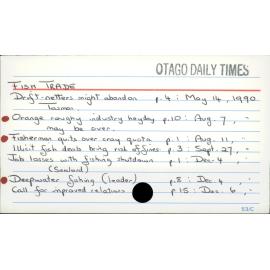 OTAGO DAILY TIMES
FISH TRADE
Drift-netters might abandon p.4 : May 14, 1990
Tasman.
Orange roughy industry heyday p.10 : Aug. 7, "
may be over.
Fisherman quits over cray quota p.1 : Aug. 11, "
Illicit fish deals bring risk of fines p.3 : Sept. 27, "
Job losses with fishing shutdown p.1 : Dec. 4 "
(Sealord)
Deepwater fishing (leader) p.8 : Dec. 4, "
Call for improved relations p 15 : Dec. 6, "